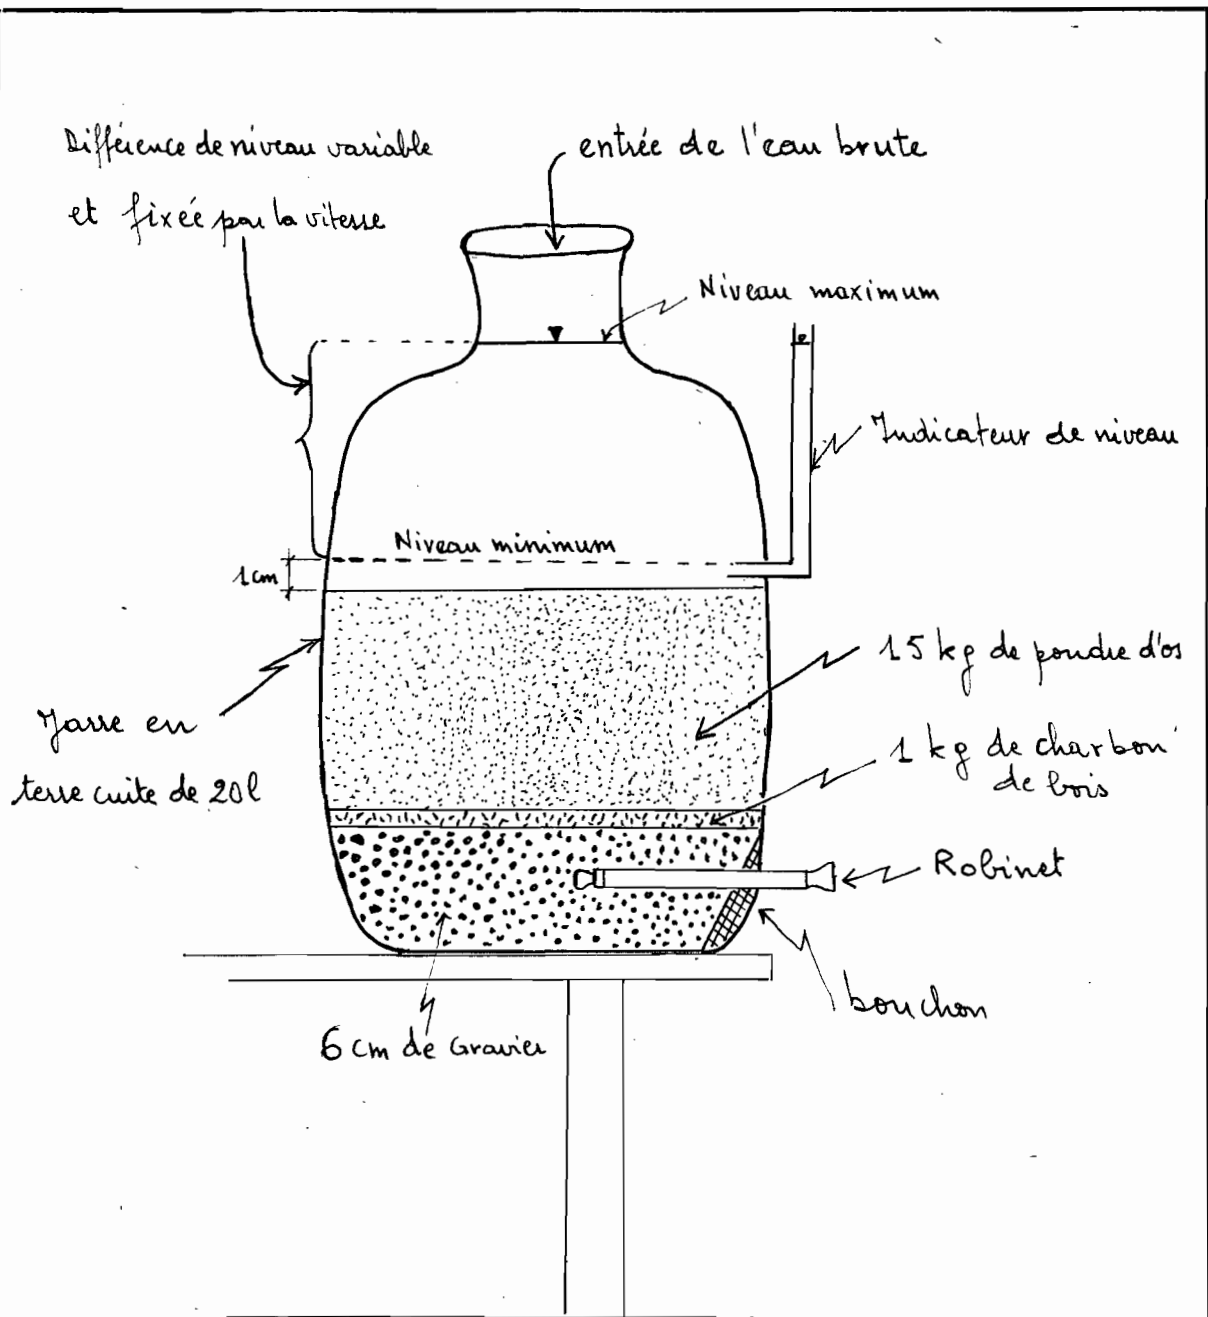 Différence de niveau variable
et fixée par la vitesse
entrée de l'eau brute
Niveau maximum
Indicateur de niveau
Niveau minimum
1cm
15 kg de poudre d'os
1 kg de charbon
de bois
Jarre en
terre cuite de 20l
Robinet
bouchon
6 cm de Gravier